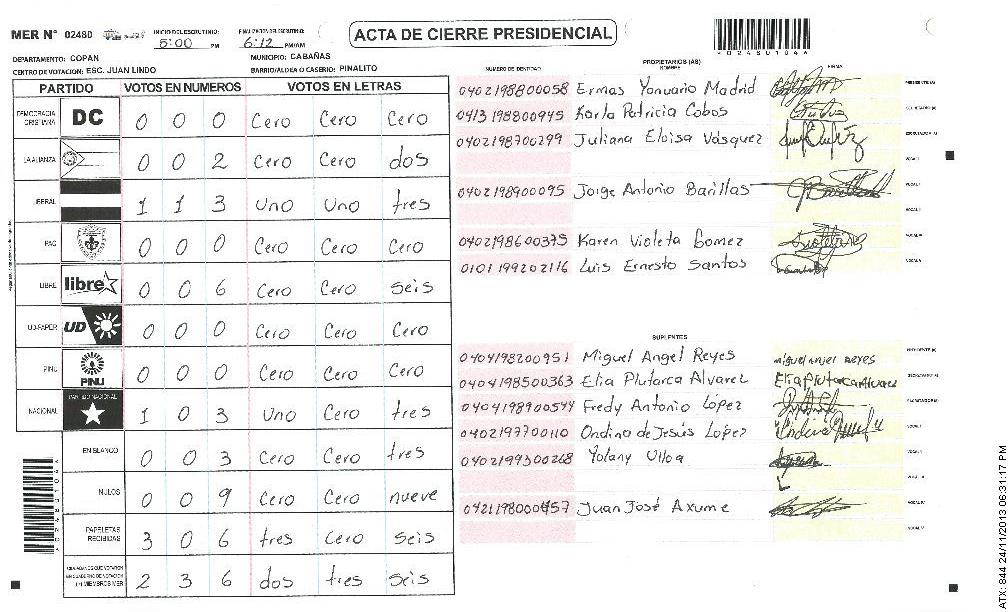 MER N° 02480
INICIO DEL ESCRUTINIO: 5:00 PM
FINALIZACION DEL ESCRUTINIO: 6:12 PM/AM
ACTA DE CIERRE PRESIDENCIAL
024801044
DEPARTAMENTO: COPAN
MUNICIPIO: CABAÑAS
CENTRO DE VOTACION: ESC. JUAN LINDO
BARRIO/ALDEA O CASERIO: PINALITO
PARTIDO VOTOS EN NUMEROS VOTOS EN LETRAS
DEMOCRACIA CRISTIANA DC 0 0 0 Cero Cero Cero
LA ALIANZA 0 0 2 Cero Cero dos
LIBERAL 1 1 3 Uno Uno tres
PAC 0 0 0 Cero Cero Cero
LIBRE libre 0 0 6 Cero Cero seis
UD-FAPER UD 0 0 0 Cero Cero Cero
PINU PINU 0 0 0 Cero Cero Cero
NACIONAL PARTIDO NACIONAL 1 0 3 Uno Cero tres
EN BLANCO 0 0 3 Cero Cero tres
NULOS 0 0 9 Cero Cero nueve
PAPELETAS RECIBIDAS 3 0 6 tres Cero seis
CIUDADANOS QUE VOTARON EN CUADERNO DE VOTACION (+) MIEMBROS MER 2 3 6 dos tres seis
NUMERO DE IDENTIDAD
PROPIETARIOS (AS)
NOMBRE
FIRMA
0402198800058 Ermas Yonuario Madrid
PRESIDENTE (A)
0413198800945 Karla Patricia Cobos
SECRETARIO (A)
0402198700299 Juliana Eloisa Vásquez
ESCRUTADOR (A)
VOCAL I
0402198900095 Jorge Antonio Barillas
0402198600375 Karen Violeta Gomez
0101199202116 Luis Ernesto Santos
SUPLENTES
0404198200951 Miguel Angel Reyes
0404198500363 Elia Plutarca Alvarez Elia Plutarca Alvarez
0404198900544 Fredy Antonio López
0402197700110 Ondina de Jesús López
0402199300268 Yolany Ulloa
0421198000457 Juan José Axume
ATX: 844 24/11/2013 06:31:17 PM